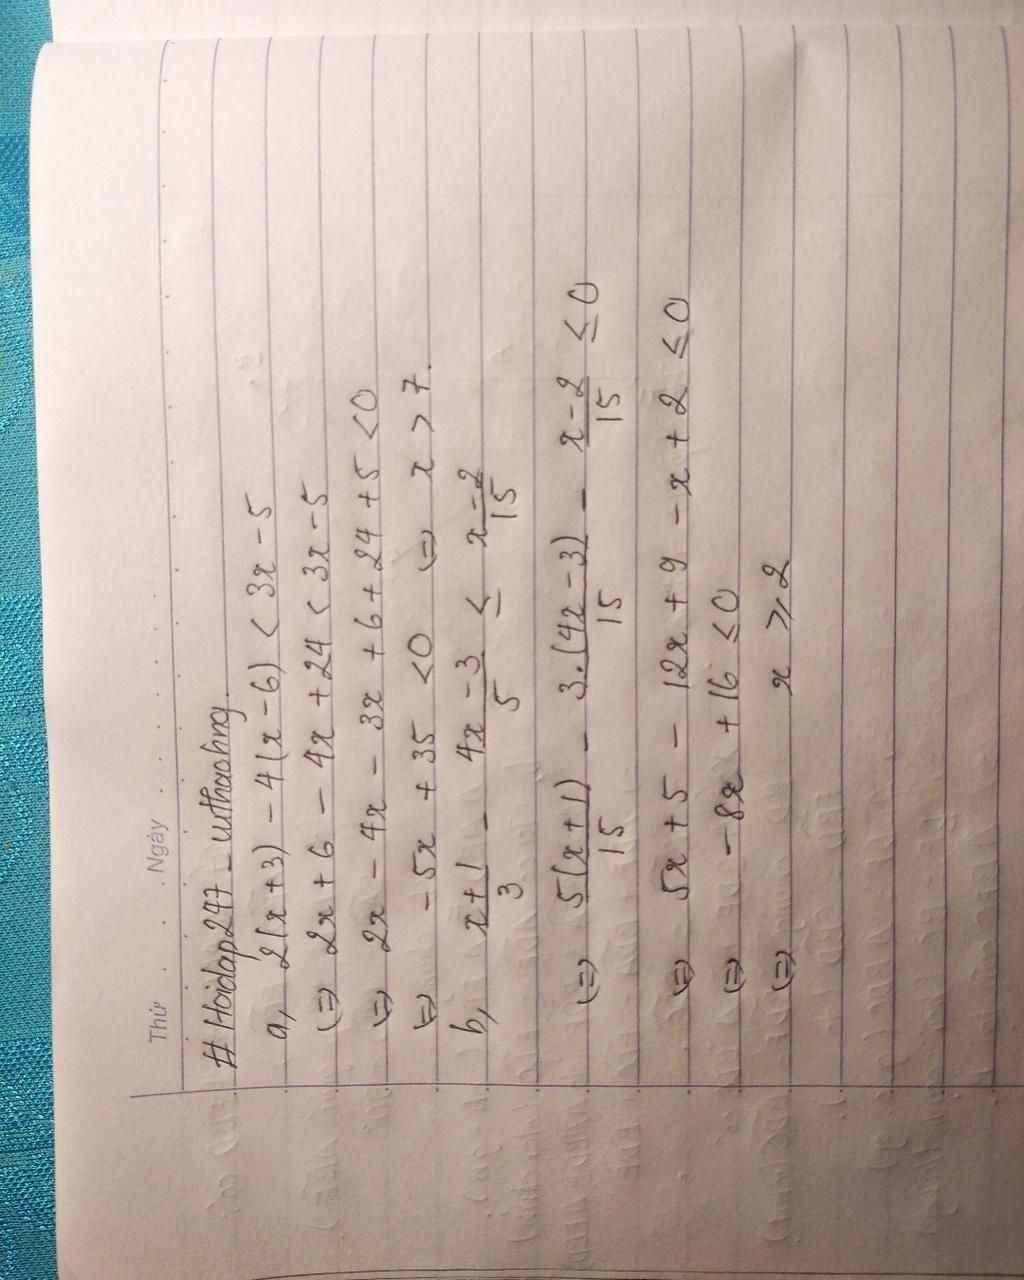 Thứ . . . Ngày . . . . . . .
# Hoidap247 _ vuthaohng.
a, 2(x+3) - 4(x-6) < 3x - 5
(=) 2x + 6 - 4x + 24 < 3x - 5
(=) 2x - 4x - 3x + 6 + 24 + 5 < 0
(=) - 5x + 35 < 0 (=) x > 7.
b, \frac{x+1}{3} - \frac{4x-3}{5} ≤ \frac{x-2}{15}
(=) \frac{5(x+1)}{15} - \frac{3.(4x-3)}{15} - \frac{x-2}{15} ≤ 0
(=) 5x + 5 - 12x + 9 - x + 2 ≤ 0
(=) - 8x + 16 ≤ 0
(=) x ≥ 2